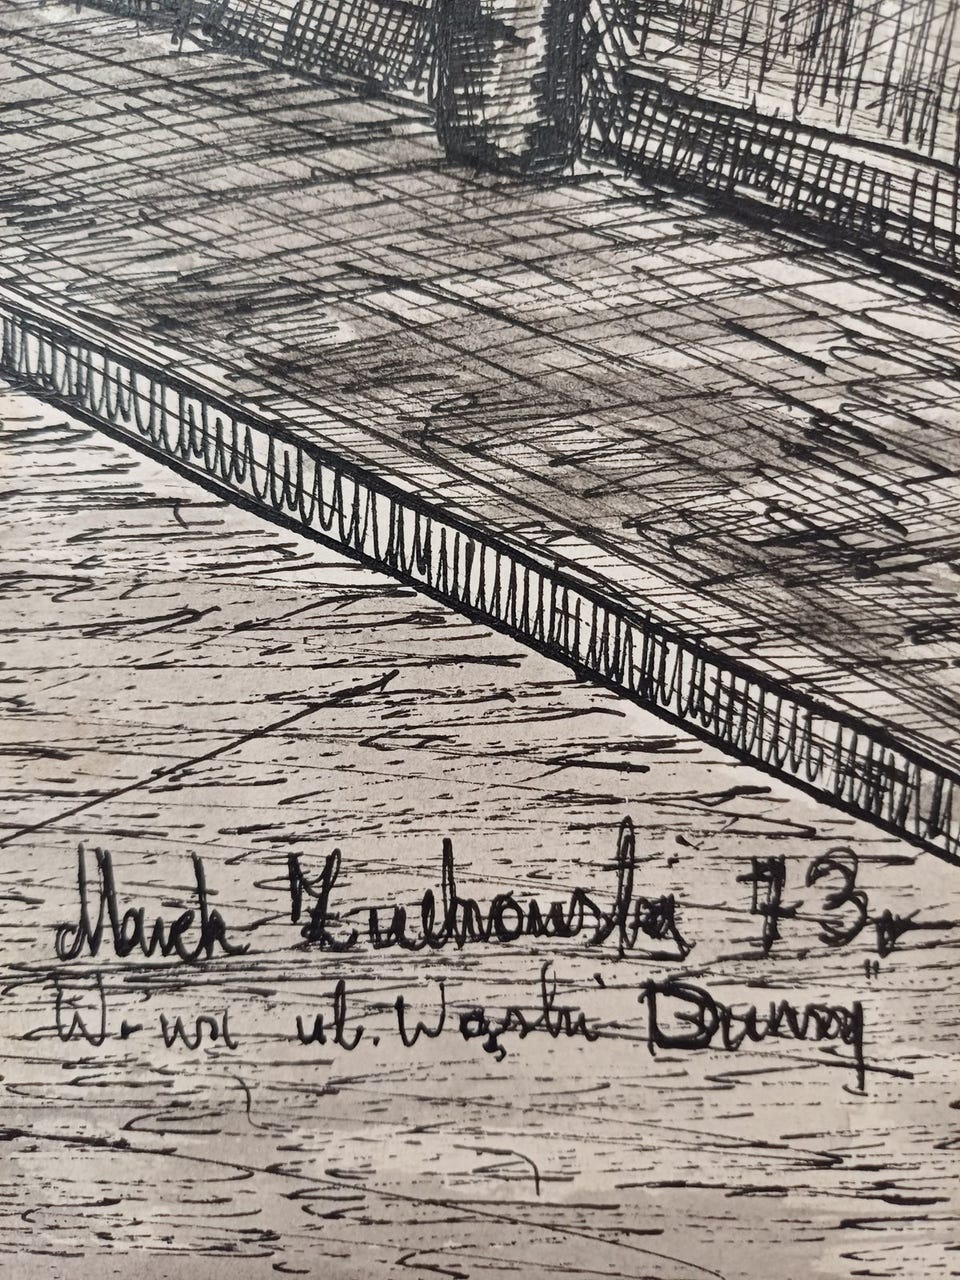 Marek Żuchowski 73 r
W-wa ul. Wąski Dunaj"